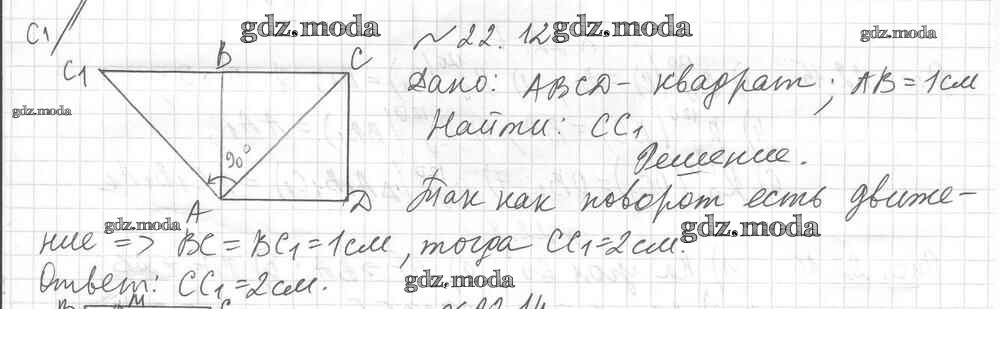 C1
gdz.moda
№ 22. 12
gdz.moda
gdz.moda
C1
B
C
Дано: ABCD - квадрат; AB = 1 см
gdz.moda
Найти: CC1
90°
Решение.
A
D
Так как поворот есть движе-
gdz.moda
gdz.moda
ние => BC = BC1 = 1 см, тогда CC1 = 2 см.
Ответ: CC1 = 2 см.
gdz.moda
M